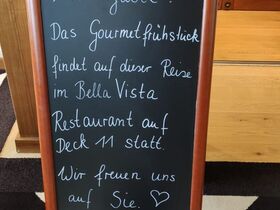 Das Gourmetfrühstück
findet auf dieser Reise
im Bella Vista
Restaurant auf
Deck 11 statt.
Wir freuen uns
auf Sie. ♡